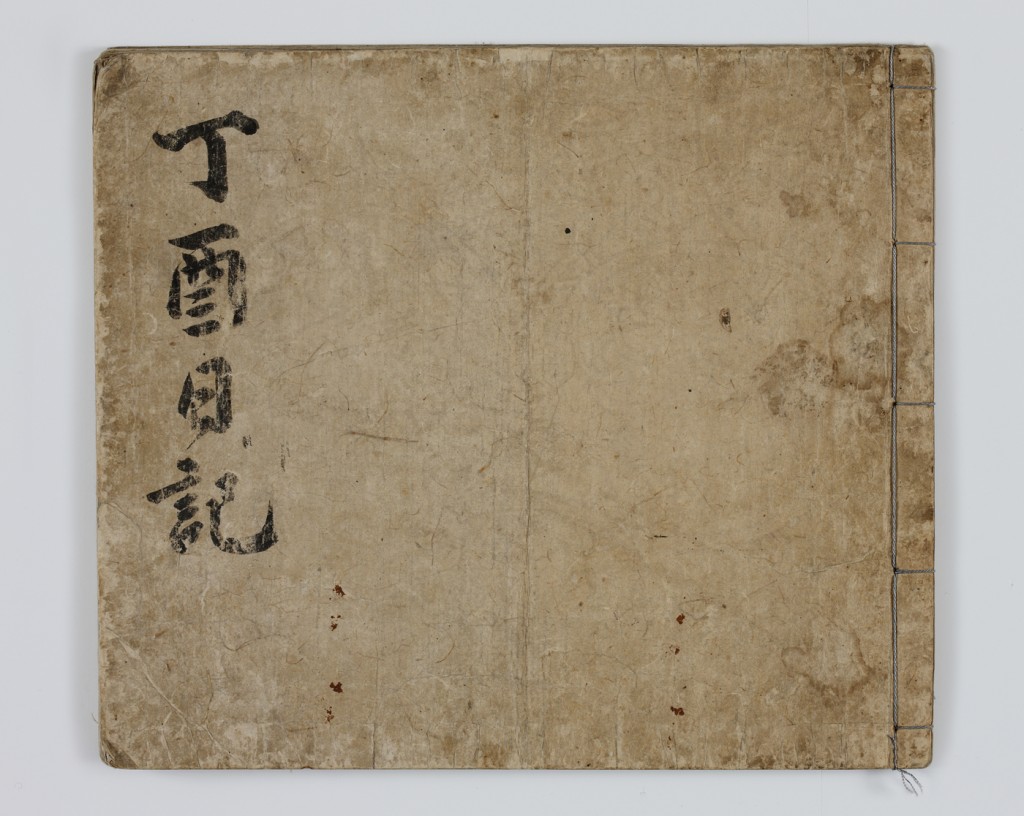 丁酉日記